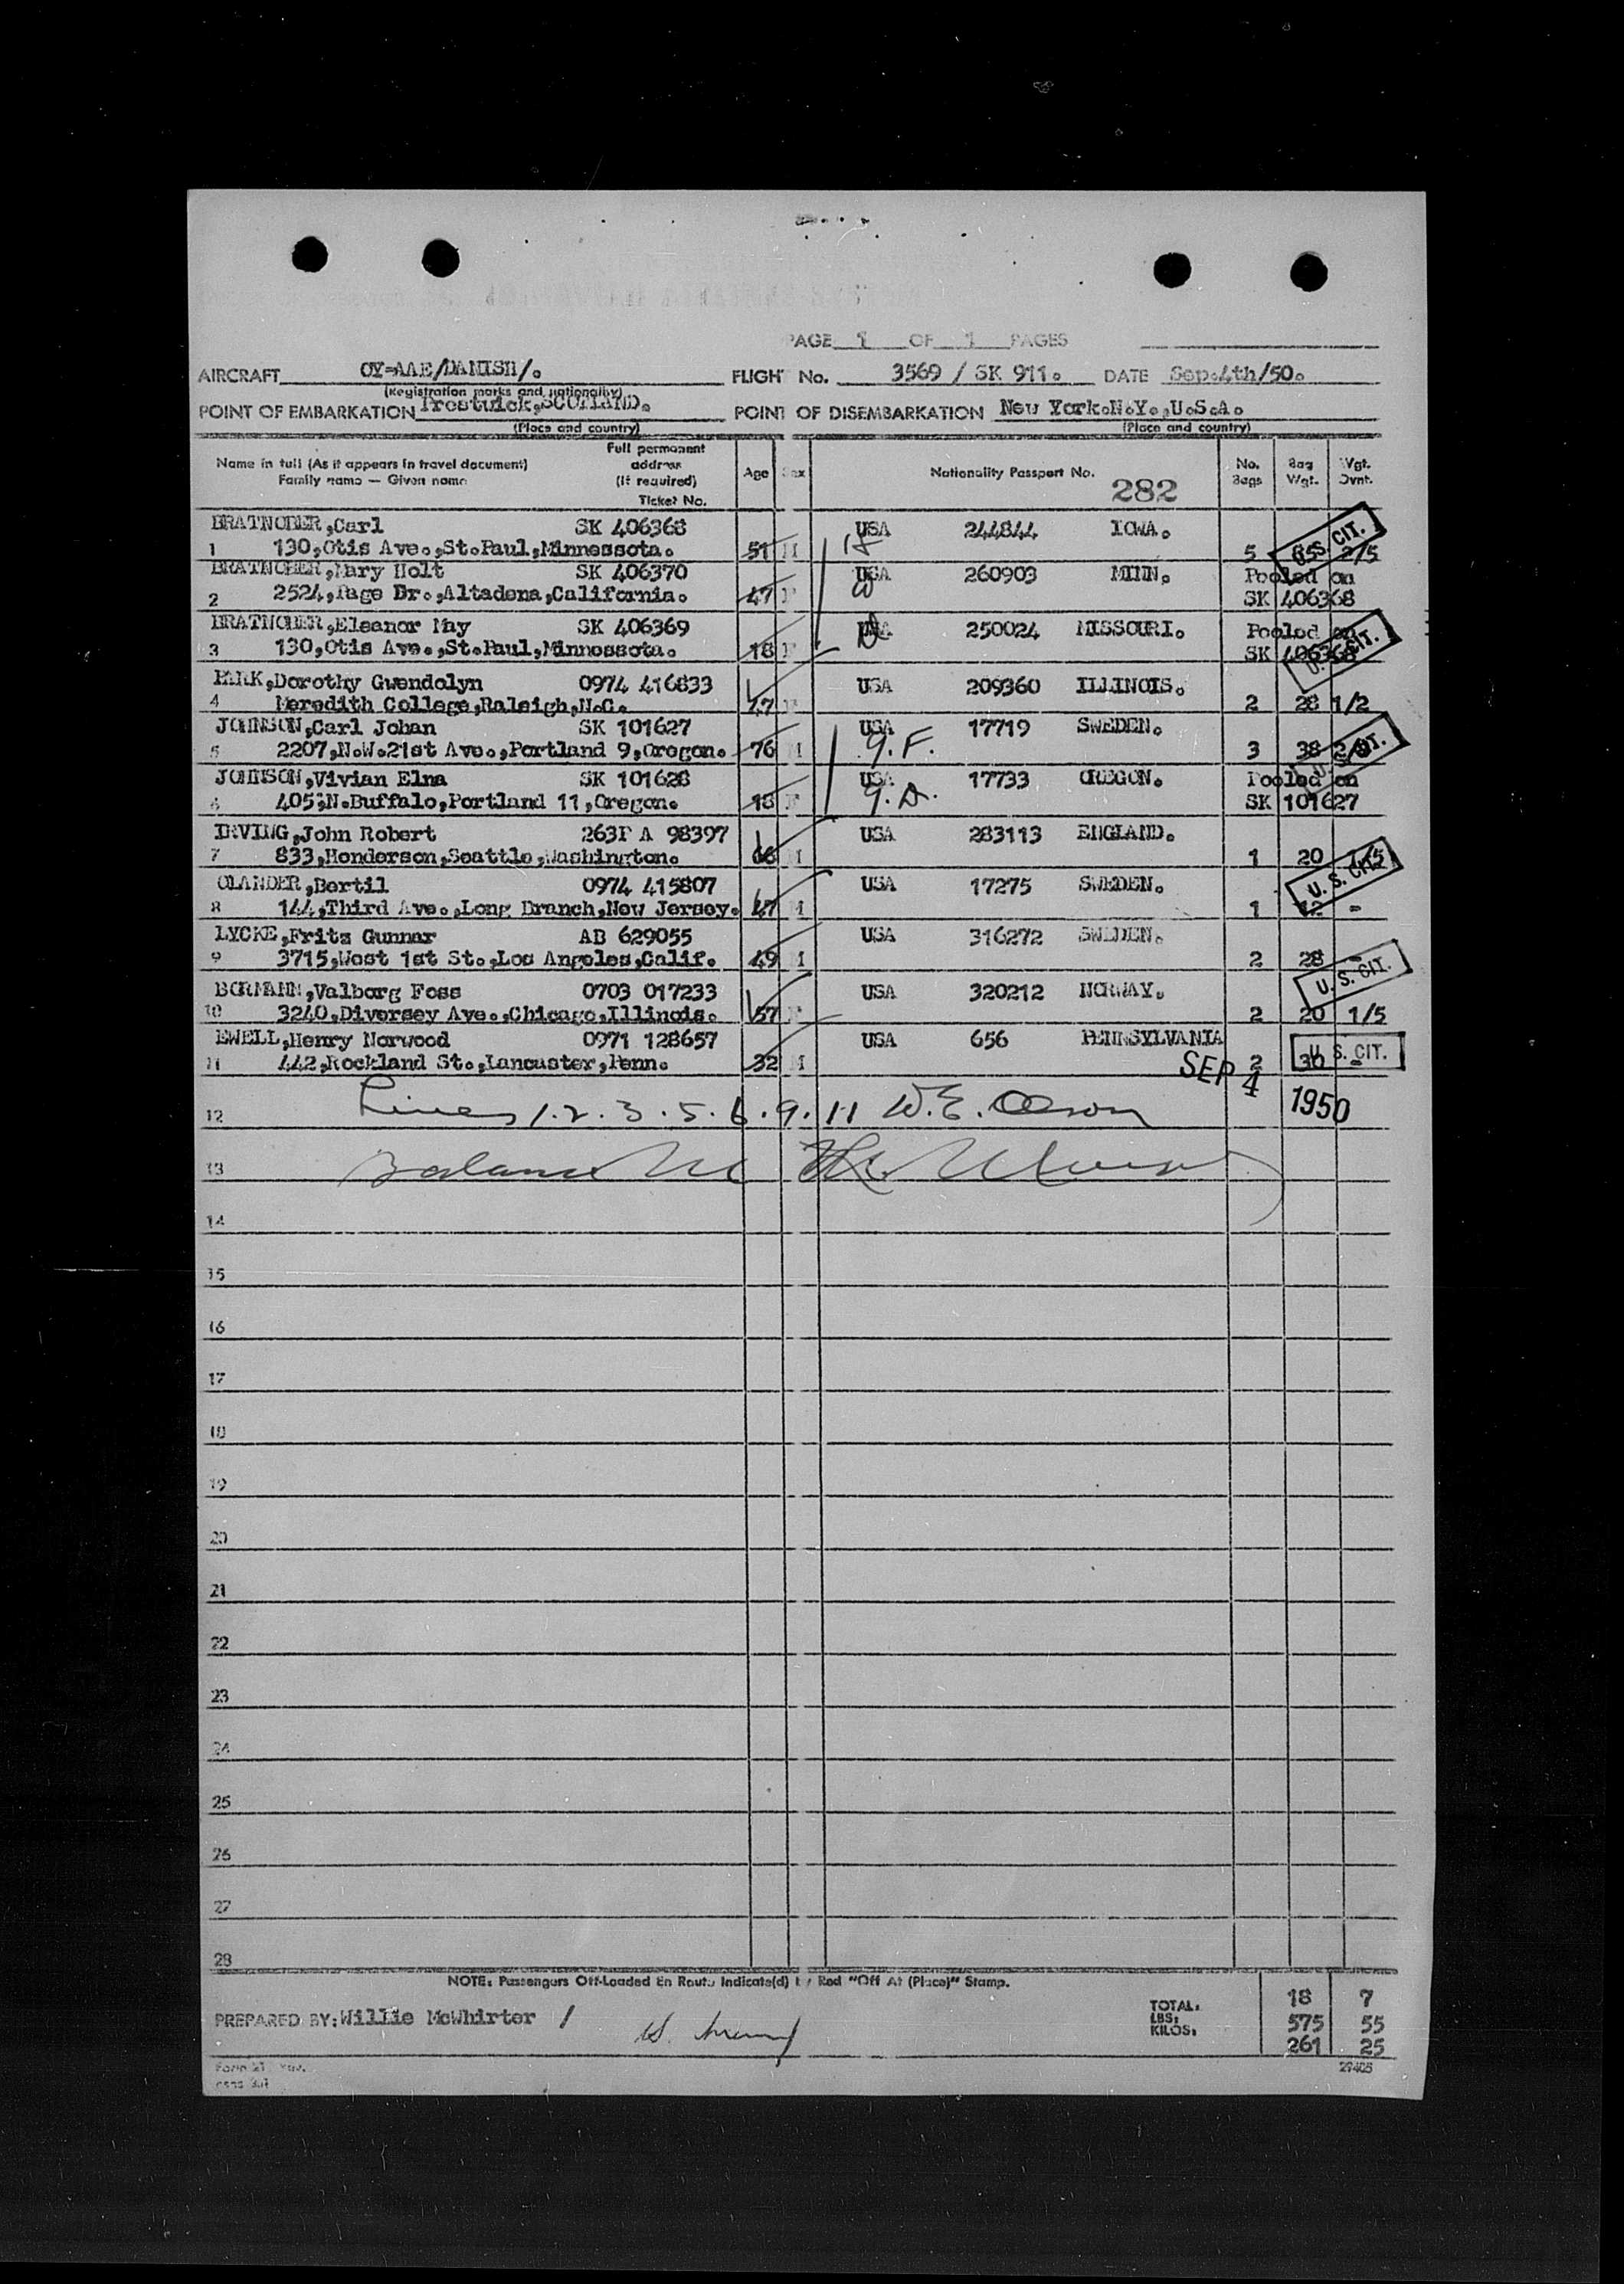 PAGE 1 OF 1 PAGES
AIRCRAFT OY-AAE/DANISH/. FLIGHT No. 3569 / SK 911. DATE Sep.4th/50.
(Registration marks and nationality)
POINT OF EMBARKATION Prestwick,SCOTLAND. POINT OF DISEMBARKATION New York.N.Y.,U.S.A.
(Place and country) (Place and country)
Name in full (As it appears in travel document) Family name — Given name Full permanent address (If required) Ticket No. Age Sex Nationality Passport No. 282 No. Bags Bag Wgt. Wgt. Ovnt.
BRATNOBER,Carl SK 406368 USA 244844 IOWA.
1 130,Otis Ave.,St.Paul,Minnessota. 51 M 5 85 2/5 U.S. CIT.
BRATNOBER,Mary Holt SK 406370 USA 260903 MINN. Pooled on
2 2524,Page Dr.,Altadena,California. 47 F SK 406368
BRATNOBER,Eleanor May SK 406369 USA 250024 MISSOURI. Pooled on
3 130,Otis Ave.,St.Paul,Minnessota. 18 F SK 406368 U.S. CIT.
PARK,Dorothy Gwendolyn 0974 416833 USA 209360 ILLINOIS.
4 Meredith College,Raleigh,N.C. 47 F 2 28 1/2
JOHNSON,Carl Johan SK 101627 USA 17719 SWEDEN.
5 2207,N.W.21st Ave.,Portland 9,Oregon. 76 M G.F. 3 38 U.S. CIT.
JOHNSON,Vivian Elna SK 101628 USA 17733 OREGON. Pooled on
6 405;N.Buffalo,Portland 11,Oregon. 18 F G.D. SK 101627
IRVING,John Robert 263F A 98397 USA 283113 ENGLAND.
7 833,Henderson,Seattle,Washington. 66 M 1 20 1/5 U. S. CIT.
OLANDER,Bertil 0974 415807 USA 17275 SWEDEN.
8 144,Third Ave.,Long Branch,New Jersey. 47 M 1 12 -
LYCKE,Fritz Gunnar AB 629055 USA 316272 SWEDEN.
9 3715,West 1st St.,Los Angeles,Calif. 49 M 2 28 -
BORMANN,Valborg Foss 0703 017233 USA 320212 NORWAY. U. S. CIT.
10 3240,Diversey Ave.,Chicago,Illinois. 57 F 2 20 1/5
EWELL,Henry Norwood 0971 128657 USA 656 PENNSYLVANIA
11 442,Rockland St.,Lancaster,Penn. 32 M 2 30 - U. S. CIT.
SEP 4 1950
12 Lines 1.2.3.5.6.9.11 W.E. Olson
13 Balance
14
15
16
17
18
19
20
21
22
23
24
25
26
27
28
NOTE: Passengers Off-Loaded En Route Indicate(d) by Red "Off At (Place)" Stamp.
PREPARED BY: Willie McWhirter /
TOTAL: 18 7
LBS: 575 55
KILOS: 261 25
29405